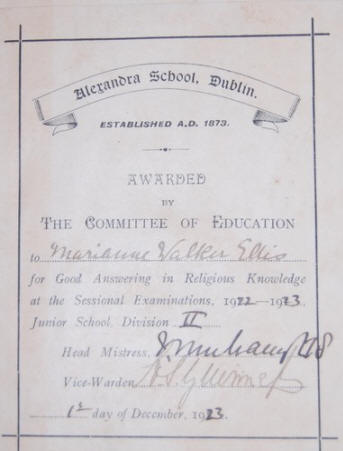 Alexandra School, Dublin.
ESTABLISHED A.D. 1873.
AWARDED
BY
THE COMMITTEE OF EDUCATION
to Marianne Walker Ellis
for Good Answering in Religious Knowledge
at the Sessional Examinations, 1922—1923.
Junior School, Division II
Head Mistress,
Vice-Warden
1st day of December, 1923.